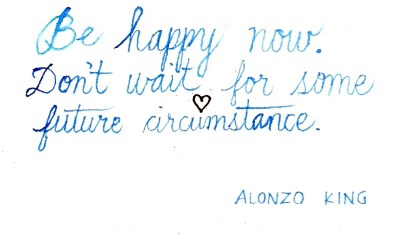 Be happy now.
Don't wait for some
future circumstance.
ALONZO KING